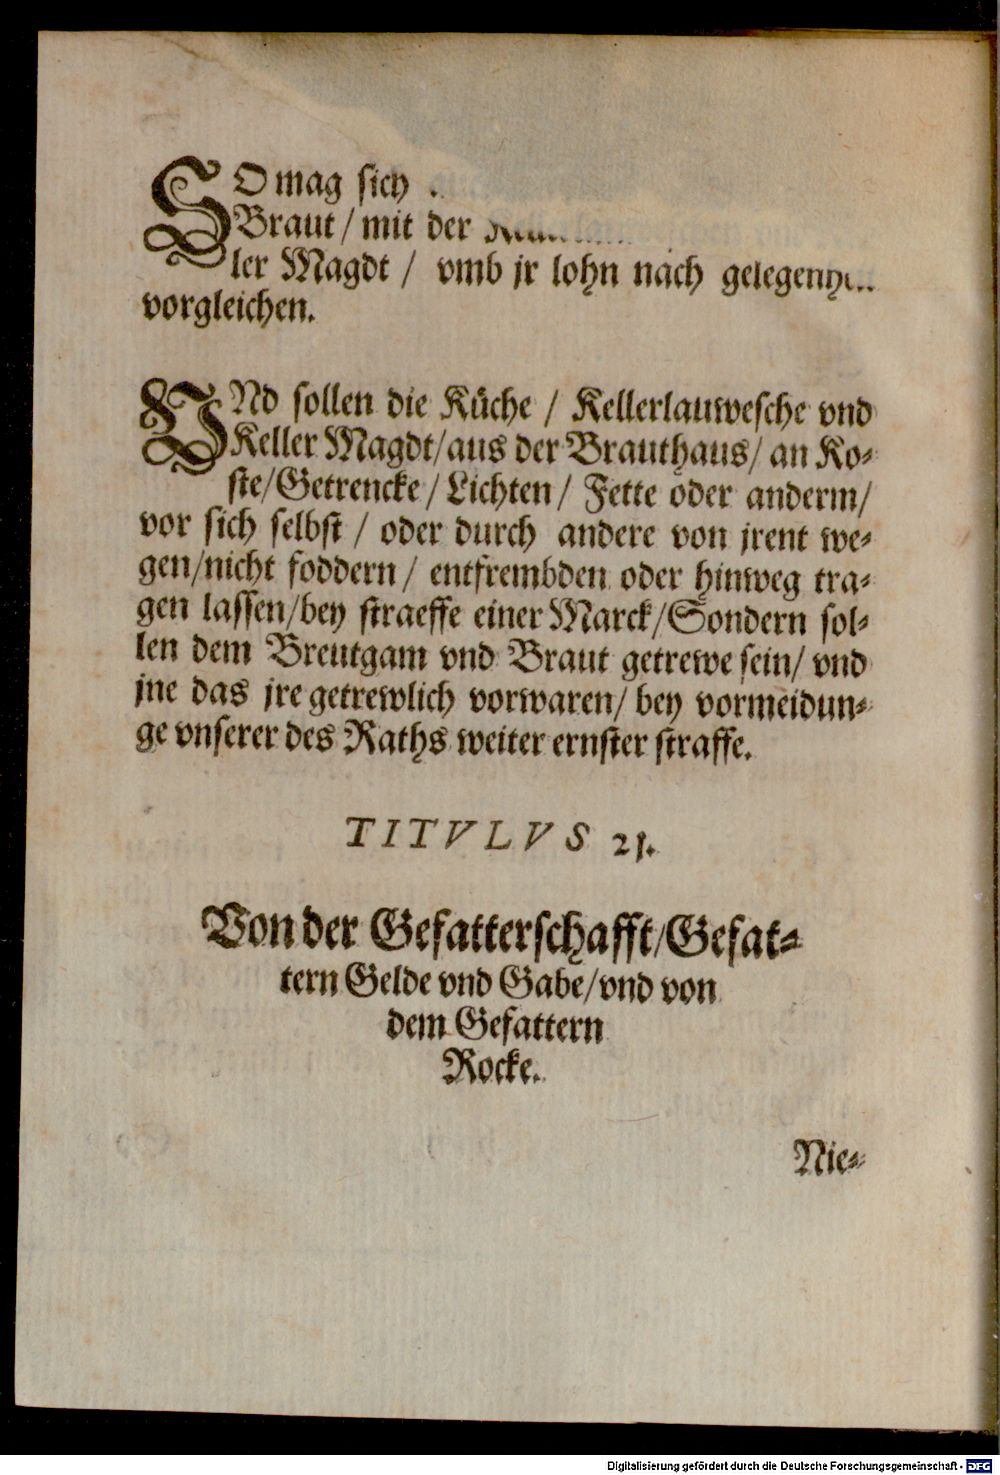 SO mag sich
Braut / mit der
ler Magdt / vmb jr lohn nach
vorgleichen.
VNd sollen die Küche / Kellerlauwesche vnd
Keller Magdt/aus der Brauthaus/ an Ko-
ste/Getrencke / Lichten / Fette oder anderm/
vor sich selbst / oder durch andere von jrent we-
gen/nicht foddern / entfrembden oder hinweg tra-
gen lassen/bey straeffe einer Marck/Sondern sol-
len dem Breutgam vnd Braut getrewe sein/ vnd
jne das jre getrewlich vorwaren/ bey vormeidun-
ge vnserer des Raths weiter ernster straffe.
TITVLVS 21.
Von der Gefatterschafft/Gefat-
tern Gelde vnd Gabe/vnd von
dem Gefattern
Rocke.
Nie-
Digitalisierung gefördert durch die Deutsche Forschungsgemeinschaft - DFG